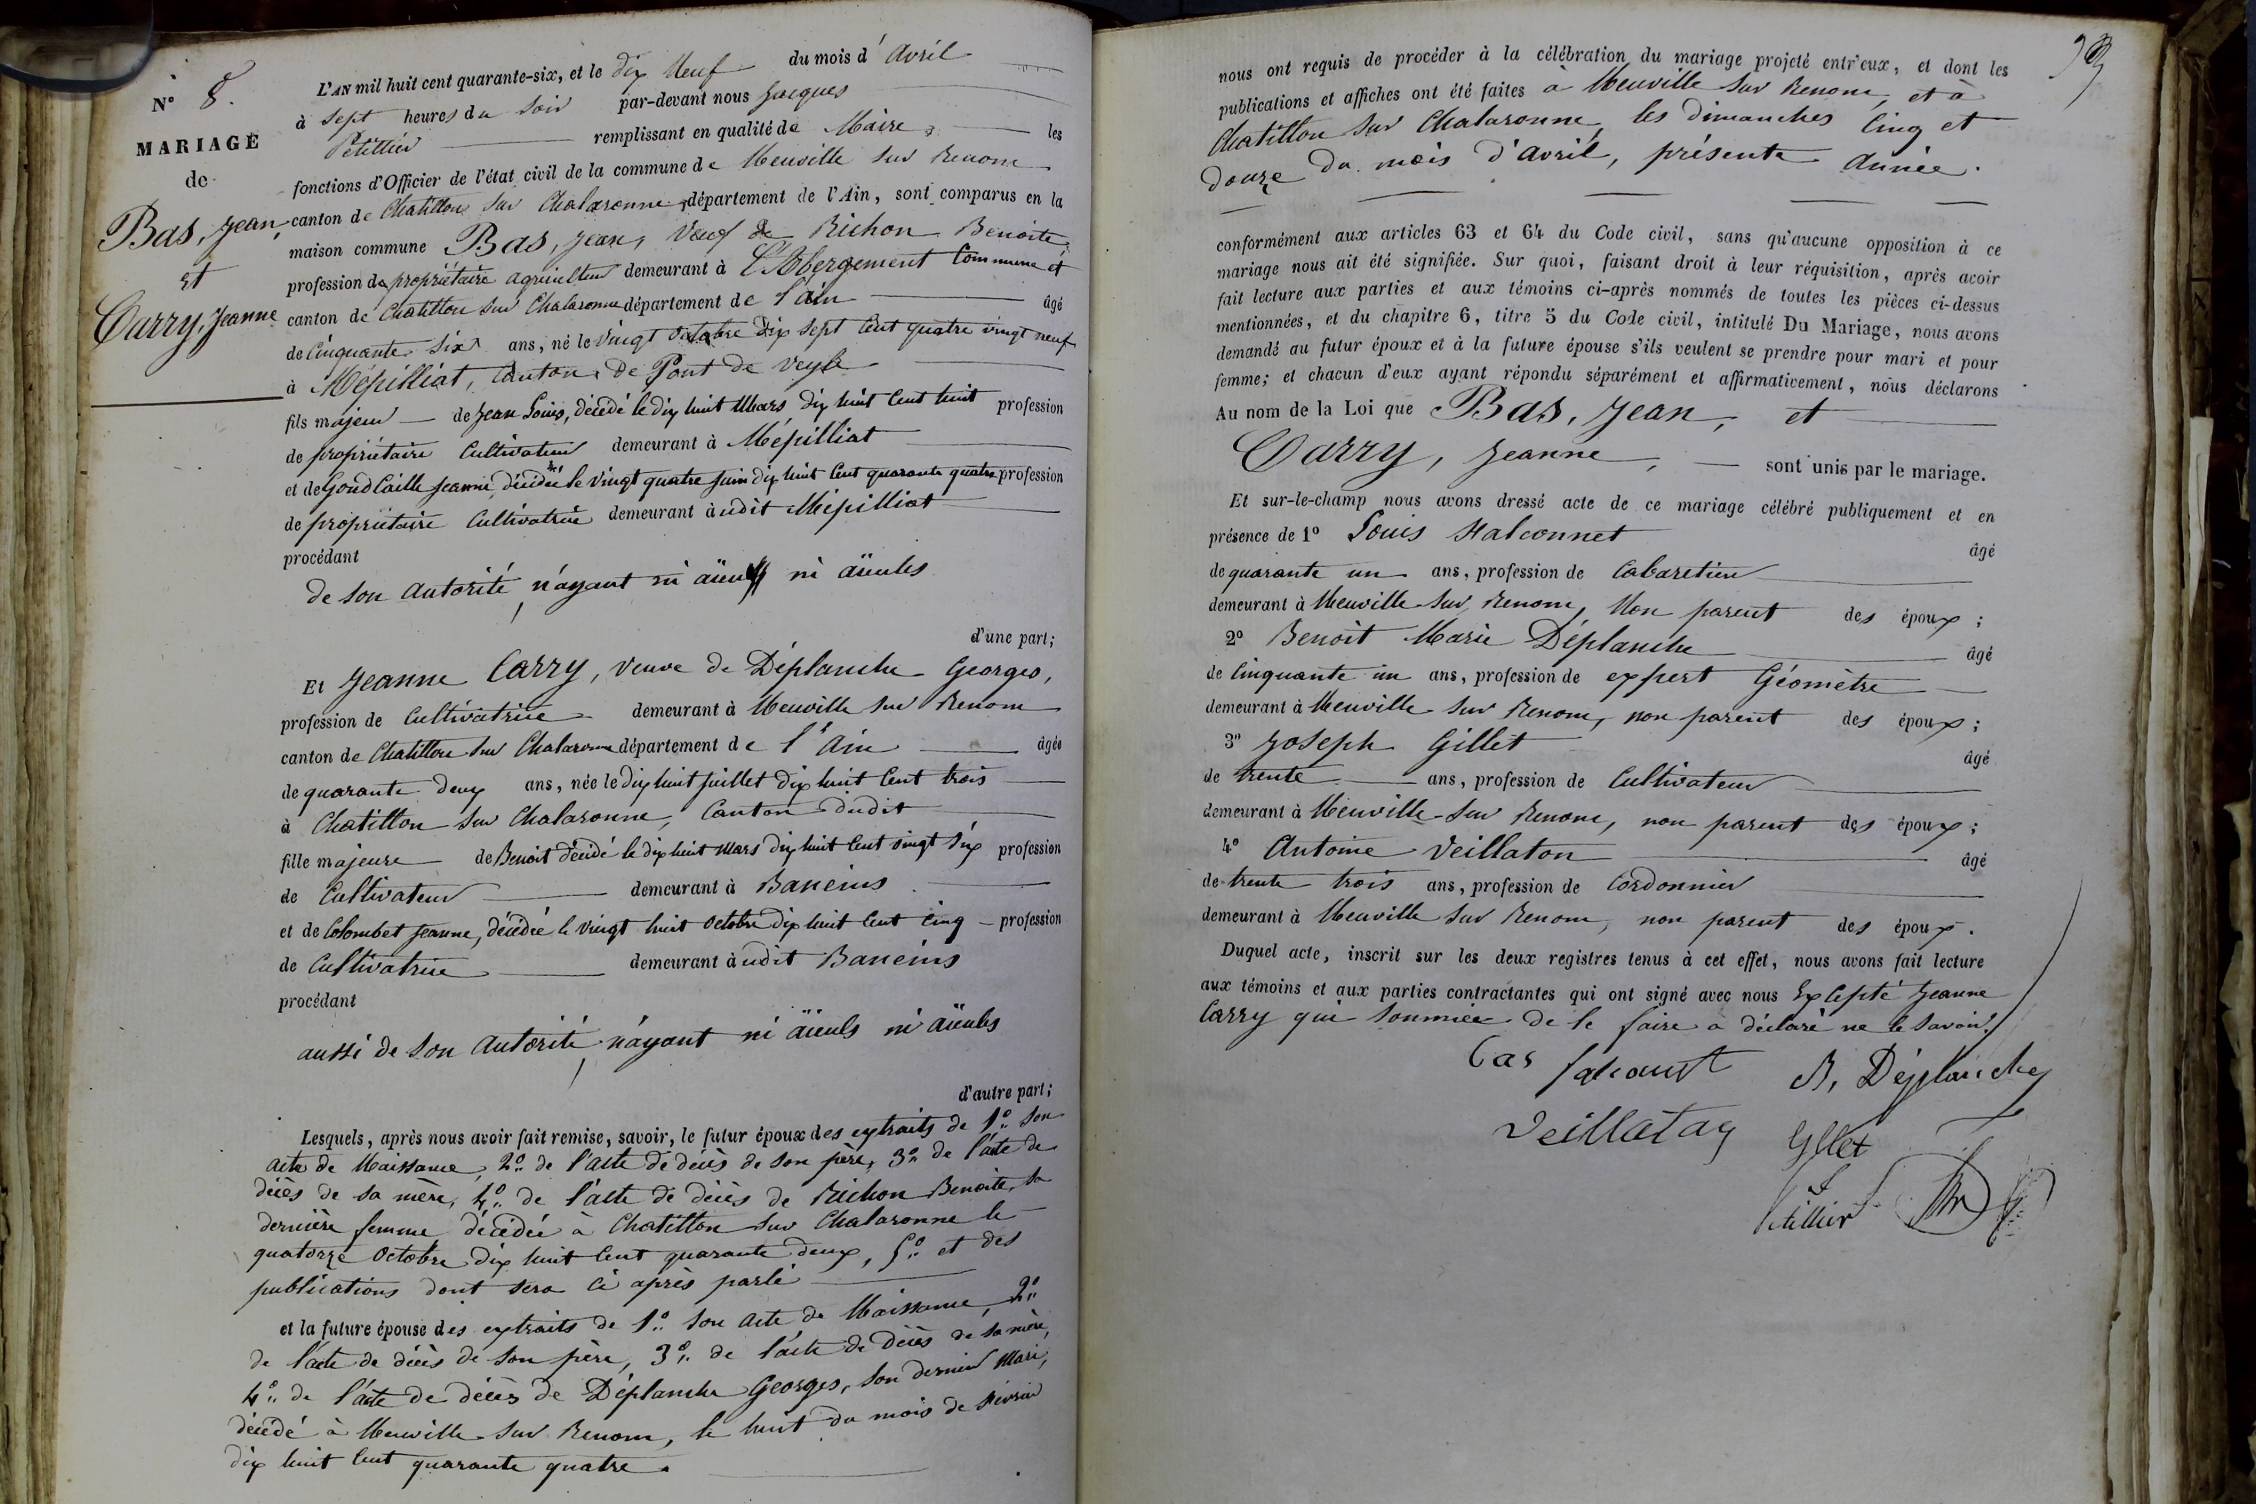 N° 8.
MARIAGE
de
Bas, Jean,
et
Carry, Jeanne
L'AN mil huit cent quarante-six, et le dix Neuf du mois d'Avril
à sept heures du soir par-devant nous Jacques
Petillier remplissant en qualité de Maire, les
fonctions d'Officier de l'état civil de la commune de Neuville sur Renom
canton de Chatillon sur Chalaronne, département de l'Ain, sont comparus en la
maison commune Bas, Jean, Veuf de Richon Benoite,
profession de propriétaire agriculteur demeurant à L'Abergement Commune et
canton de Chatillon sur Chalaronne département de l'ain âgé
de Cinquante six ans, né le vingt octobre dix sept cent quatre vingt neuf
à Mépilliat, Canton de Pont de Veyle
fils majeur de Jean Louis, décédé le dix huit Mars dix huit Cent huit profession
de propriétaire Cultivateur demeurant à Mépilliat
et de Gond Caille Jeanne, décédée le vingt quatre juin dix huit Cent quarante quatre profession
de propriétaire Cultivatrice demeurant àudit Mépilliat
procédant
de son autorité, n'ayant ni aïeuls ni aïeules
d'une part;
Et Jeanne Carry, veuve de Déplanche Georges,
profession de Cultivatrice demeurant à Neuville sur Renom
canton de Chatillon sur Chalaronne département de l'Ain âgée
de quarante deux ans, née le dix huit juillet dix huit Cent trois
à Chatillon sur Chalaronne, Canton dudit
fille majeure de Benoit décédé le dix huit Mars dix huit Cent vingt six profession
de Cultivateur demeurant à Baneins
et de Colombet Jeanne, décédée le vingt huit octobre dix huit Cent Cinq profession
de Cultivatrice demeurant àudit Baneins
procédant
aussi de son autorité, n'ayant ni aïeuls ni aïeules
d'autre part;
Lesquels, après nous avoir fait remise, savoir, le futur époux des extraits de 1° son
acte de Naissance, 2° de l'acte de décès de son père, 3° de l'acte de
décès de sa mère, 4° de l'acte de décès de Richon Benoite, sa
dernière femme décédée à Chatillon sur Chalaronne le
quatorze Octobre dix huit Cent quarante deux, 5° et des
publications dont sera ci après parlé
et la future épouse des extraits de 1° son acte de Naissance, 2°
de l'acte de décès de son père, 3° de l'acte de décès de sa mère,
4° de l'acte de décès de Déplanche Georges, son dernier Mari,
décédé à Neuville sur Renom, le huit du mois de Février
dix huit Cent quarante quatre.
nous ont requis de procéder à la célébration du mariage projeté entr'eux, et dont les
publications et affiches ont été faites à Neuville sur Renom, et à
Chatillon sur Chalaronne, les dimanches Cinq et
douze du mois d'Avril, présente année.
conformément aux articles 63 et 64 du Code civil, sans qu'aucune opposition à ce
mariage nous ait été signifiée. Sur quoi, faisant droit à leur réquisition, après avoir
fait lecture aux parties et aux témoins ci-après nommés de toutes les pièces ci-dessus
mentionnées, et du chapitre 6, titre 5 du Code civil, intitulé Du Mariage, nous avons
demandé au futur époux et à la future épouse s'ils veulent se prendre pour mari et pour
femme; et chacun d'eux ayant répondu séparément et affirmativement, nous déclarons
Au nom de la Loi que Bas, Jean, et
Carry, Jeanne, sont unis par le mariage.
Et sur-le-champ nous avons dressé acte de ce mariage célébré publiquement et en
présence de 1° Louis Halconnet âgé
de quarante un ans, profession de Cabaretier
demeurant à Neuville sur Renom, Non parent des époux;
2° Benoit Marie Déplanche âgé
de Cinquante un ans, profession de expert Géomètre
demeurant à Neuville sur Renom, non parent des époux;
3° Joseph Gillet âgé
de trente ans, profession de Cultivateur
demeurant à Neuville sur Renom, non parent des époux;
4° Antoine Veillaton âgé
de trente trois ans, profession de Cordonnier
demeurant à Neuville sur Renom, non parent des époux.
Duquel acte, inscrit sur les deux registres tenus à cet effet, nous avons fait lecture
aux témoins et aux parties contractantes qui ont signé avec nous Excepté Jeanne
Carry qui sommée de le faire a déclaré ne le savoir.
Bas B. Déplanche
Veillaton Gllet
Petillier